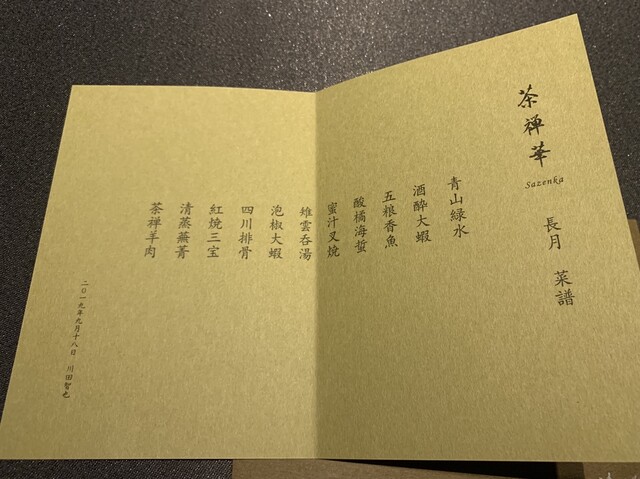 茶禅華
Sazenka
長月 菜譜
青山緑水
酒酔大蝦
五粮香魚
酸橘海蜇
蜜汁叉焼
雉雲呑湯
泡椒大蝦
四川排骨
紅焼三宝
清蒸蕪菁
茶禅羊肉
二〇一九年九月十八日 川田智也